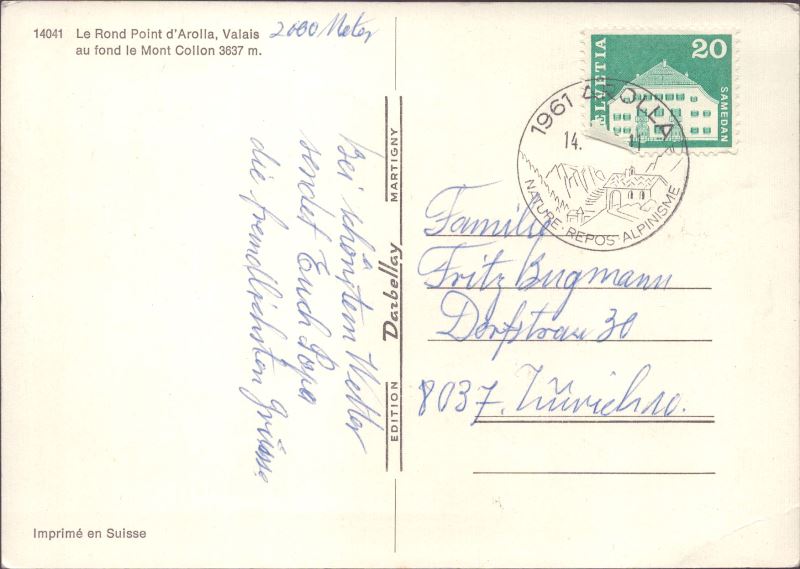 14041 Le Rond Point d'Arolla, Valais 2000 Meter
au fond le Mont Collon 3637 m.
Bei schönstem Wetter
sendet Euch Papa
die freundlichsten Grüsse
EDITION Darbellay MARTIGNY
HELVETIA
20
SAMEDAN
1961 AROLLA
14.
NATURE·REPOS·ALPINISME
Familie
Fritz Bugmann
Dorfstrasse 30
8037. Zürich 10.
Imprimé en Suisse